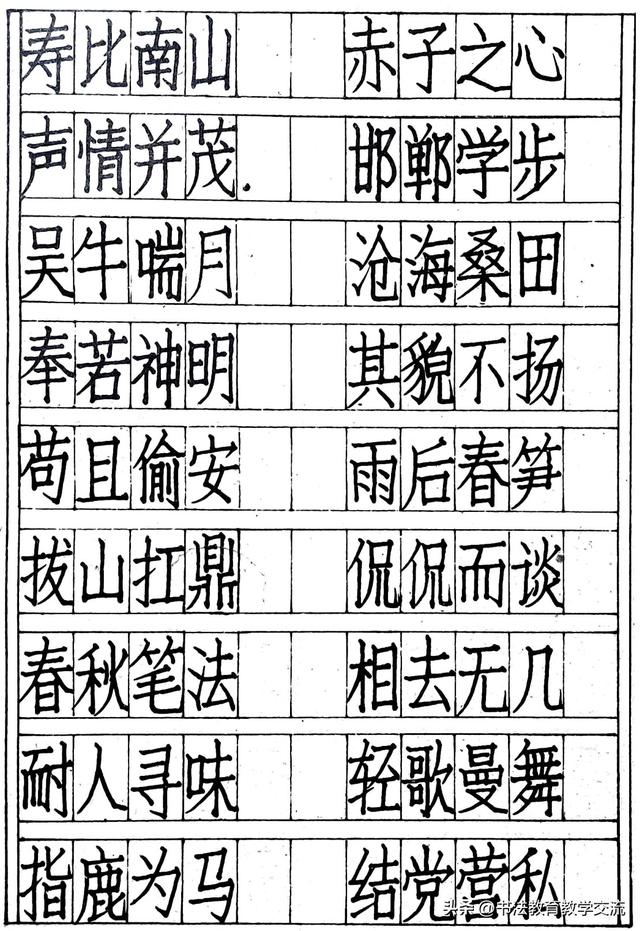 寿比南山 赤子之心
声情并茂. 邯郸学步
吴牛喘月 沧海桑田
奉若神明 其貌不扬
苟且偷安 雨后春笋
拔山扛鼎 侃侃而谈
春秋笔法 相去无几
耐人寻味 轻歌曼舞
指鹿为马 结党营私
头条@书法教育教学交流